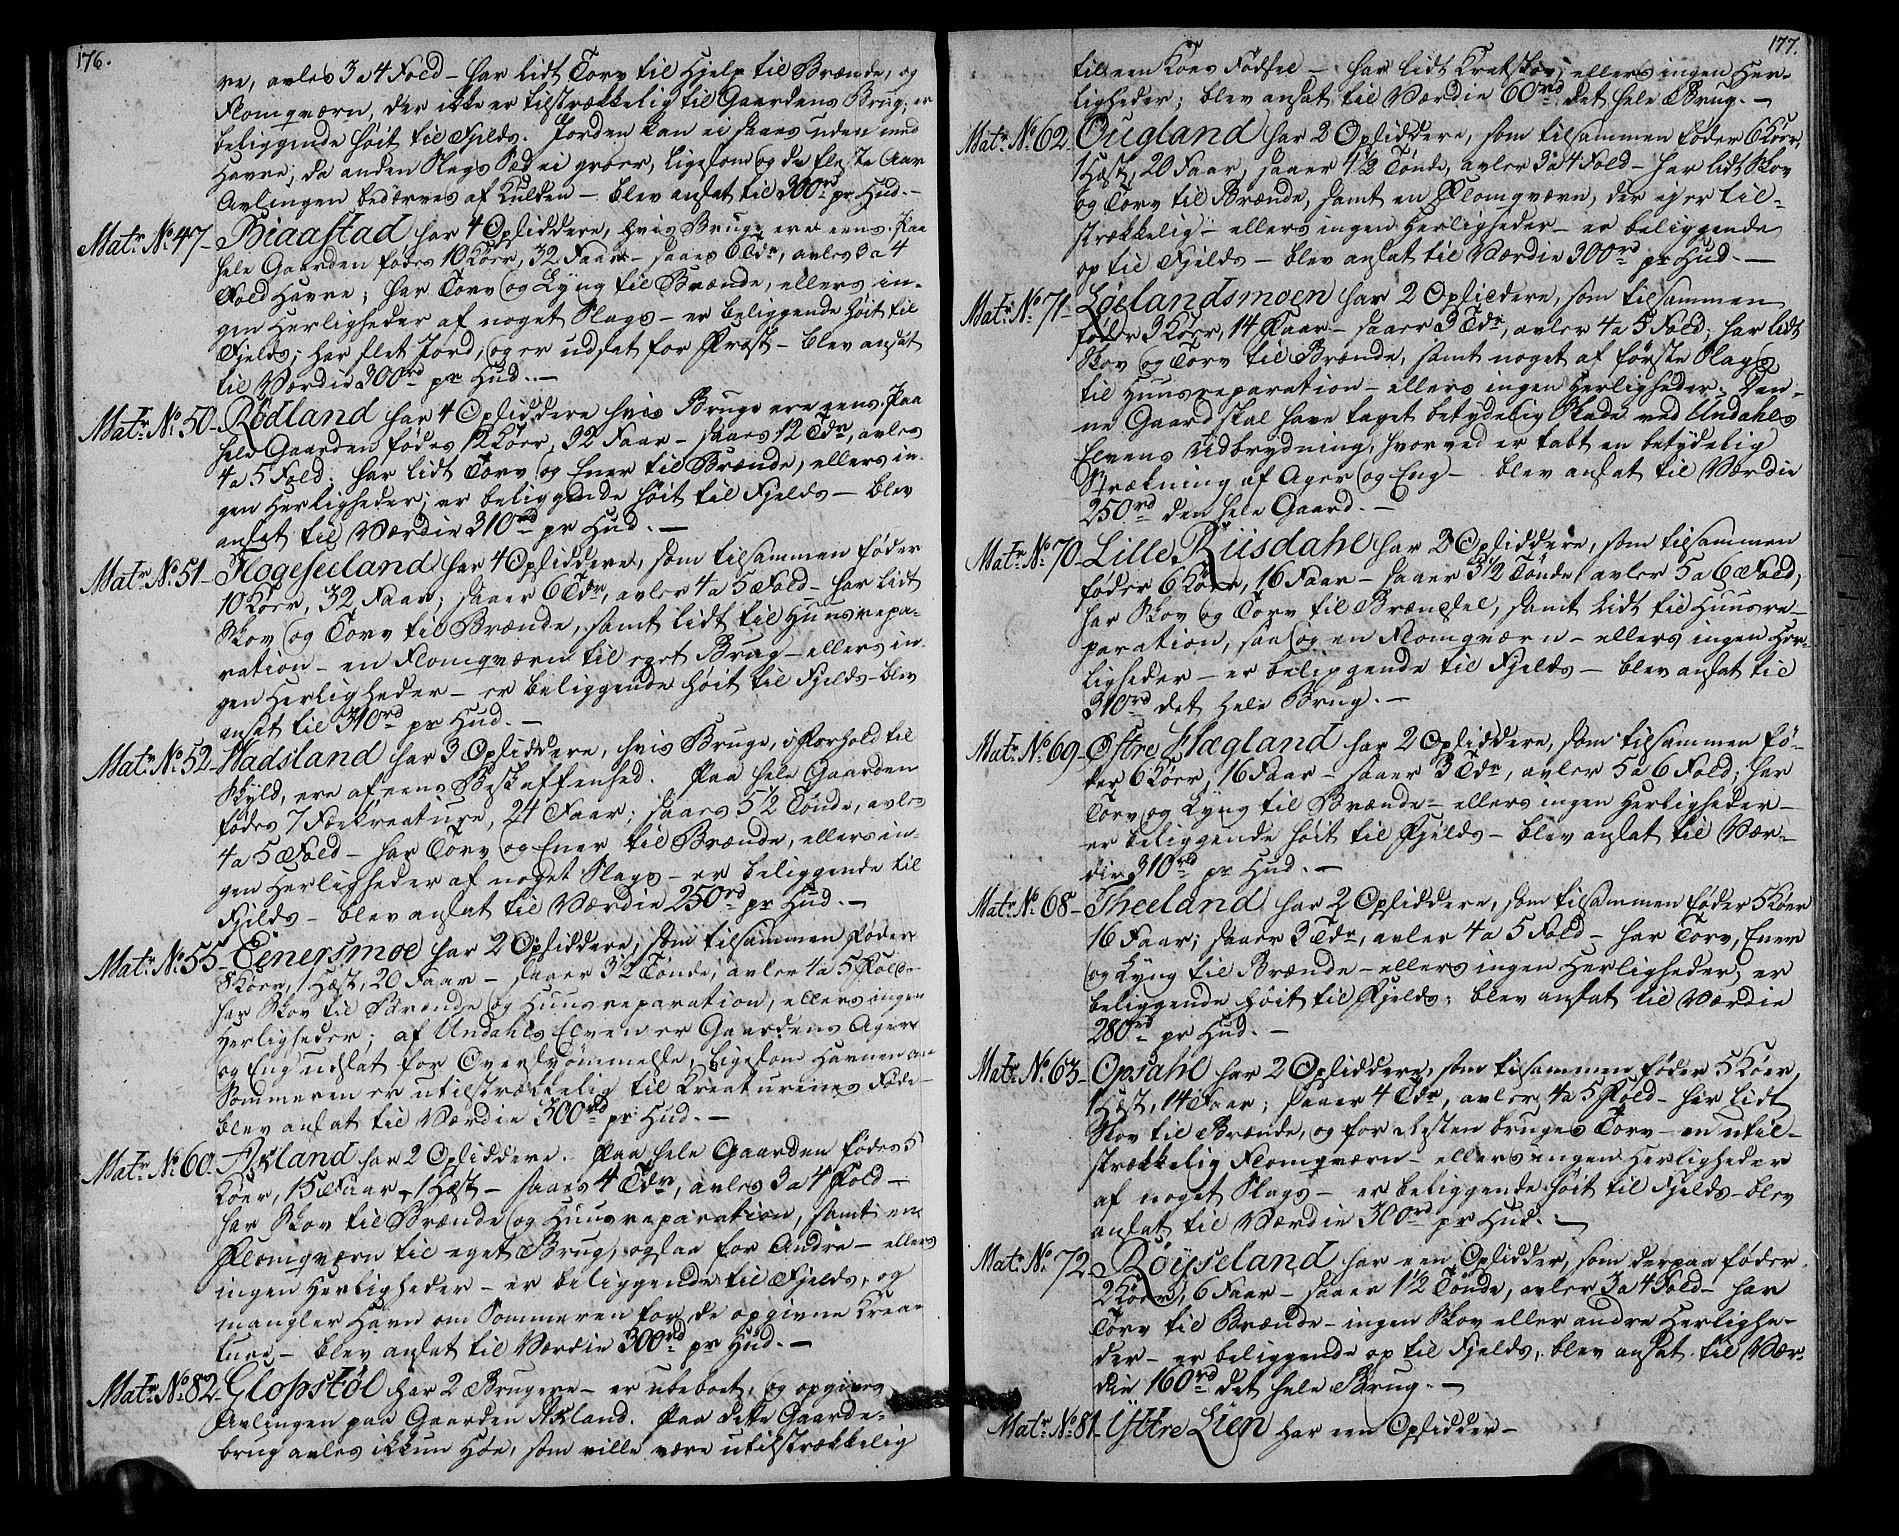 176.
re, avles 3 a 4 Fold – har lidt Torv til Hjelp til Brænde, og
Flomqværn, der ikke er tilstrækkelig til Gaardens Brug; er
beliggende høit til Fjelds. Jorden kan ei saaes uden med
Havre, da anden Slags Sæd ei groer, ligesom og de fleste Aar
Avlingen bedærves af Kulden – blev ansat til 300rd pr Hud. –
Matr. No. 47 – Biaastad har 4 Opsiddere, hvis Bruge ere eens. Paa
hele Gaarden fødes 10 Køer, 32 Faar – saaes 6 Tdr, avles 3 a 4
Fold Havre; har Torv og Lyng til Brænde, ellers in-
gen Herligheder af noget Slags – er beliggende høit til
Fjelds; har slet Jord, og er udsat for Frost – blev ansat
til Værdie 300rd pr Hud. –
Matr. No. 50 – Rødland har 4 Opsiddere hvis Bruge ere eens. Paa
hele Gaarden fødes 12 Køer, 32 Faar – saaes 12 Tdr, avles
4 a 5 Fold. har lidt Torv og Ener til Brænde, ellers in-
gen Herligheder; er beliggende høit til Fjelds – blev
ansat til Værdie 310rd pr Hud. –
Matr. No. 51 – Hogeseeland har 4 Opsiddere, som tilsammen føder
10 Køer, 32 Faar; saaer 6 Tdr, avler 4 a 5 Fold – har lidt
Skov og Torv til Brænde, samt lidt til Huusrepa-
ration – en Flomqværn til eget Brug – ellers in-
gen Herligheder – er beliggende høit til Fjelds – blev
ansat til 310rd pr Hud. –
Matr. No. 52 – Hadsland har 3 Opsiddere, hvis Bruge, i Forhold til
Skyld, ere af eens Beskaffenhed. Paa hele Gaarden
fødes 7 Foekreature, 24 Faar; saaes 5½ Tønde, avles
4 a 5 Fold – har Torv og Ener til Brænde, ellers in-
gen Herligheder af noget Slags – er beliggende til
Fjelds – blev ansat til Værdie 250rd pr Hud. –
Matr. No. 55 – Eenersmoe har 2 Opsiddere, som tilsammen føder
8 Køer, 1 Hæst, 20 Faar – saaer 3½ Tønde, avler 4 a 5 Fold –
har Skov til Brænde og Huusreparation, ellers ingen
Herligheder; af Undahls Elven er Gaardens Ager
og Eng udsat for Oversvømmelse, ligesom Havnen om
Sommeren er utilstrækkelig til Kreaturenes Føde –
blev ansat til Værdie 300rd pr Hud. –
Matr. No. 60. Askland har 2 Opsiddere. Paa hele Gaarden fødes 5
Køer, 15 Faar, 1 Hæst – saaes 4 Tdr, avles 3 a 4 Fold –
har Skov til Brænde og Huusreparation, samt en
Flomqværn til eget Brug, ogsaa for Andre – ellers
ingen Herligheder – er beliggende til Fjelds, og
mangler Havn om Sommeren for de opgivne Krea-
ture – blev ansat til Værdie 300rd pr Hud. –
Matr. No. 82 – Glopstøl har 2 Brugere – er ubeboet, og opgives
Avlingen paa Gaarden Askland. Paa dette Gaarde-
brug avles ikkun Høe, som ville være utilstrækkelig
177.
til een Koes Fødsel – har lidt Kratskov, ellers ingen Her-
ligheder; blev ansat til Værdie 60rd det hele Brug. –
Matr. No. 62. Ougland har 2 Opsiddere, som tilsammen føder 6 Køer,
1 Hæst, 20 Faar, saaer 4½ Tønde, avler 3 a 4 Fold – har lidt Skov
og Torv til Brænde, samt en Flomqværn, der ei er til-
strækkelig – ellers ingen Herligheder – er beliggende
op til Fjelds – blev ansat til Værdie 300rd pr Hud. –
Matr. No. 71 – Løelandsmoen har 2 Opsiddere, som tilsammen
føder 3 Køer, 14 Faar – saaer 3 Tdr, avler 4 a 5 Fold; har lidt
Skov og Torv til Brænde, samt noget af første Slags
til Huusreparation – ellers ingen Herligheder. Den-
ne Gaard skal have taget betydelig Skade ved Undahls
Elvens Udbrydning, hvorved er tabt en betydelig
Strækning af Ager og Eng – blev ansat til Værdie
250rd den hele Gaard. –
Matr. No. 70 – Lille Riisdahl har 2 Opsiddere, som tilsammen
føder 6 Køer, 16 Faar – saaer 3½ Tønde, avler 5 a 6 Fold;
har Skov og Torv til Brændsel, samt lidt til Huusre-
paration, saa og en Flomqværn – ellers ingen Her-
ligheder – er beliggende til Fjelds – blev ansat til
310rd det hele Brug. –
Matr. No. 69 – Østre Hægland har 2 Opsiddere, som tilsammen fø-
der 6 Køer, 16 Faar – saaer 3 Tdr, avler 5 a 6 Fold; har
Torv og Lyng til Brænde – ellers ingen Herligheder –
er beliggende høit til Fjelds – blev ansat til Vær-
die 310rd pr Hud. –
Matr. No. 68 – Theeland har 2 Opsiddere, som tilsammen føder 5 Køer
16 Faar; saaer 3 Tdr, avler 4 a 5 Fold – har Torv, Ener
og Lyng til Brænde – ellers ingen Herligheder, er
beliggende høit til Fjelds; blev ansat til Værdie
280rd pr Hud. –
Matr. No. 63 – Opsahl har 2 Opsiddere, som tilsammen føder 5 Køer,
1 Hæst, 14 Faar; saaer 4 Tdr, avler 4 a 5 Fold – har lidt
Skov til Brænde, og for Resten bruges Torv – en util-
strækkelig Flomqværn – ellers ingen Herligheder
af noget Slags – er beliggende høit til Fjelds – blev
ansat til Værdie 300rd pr Hud. –
Matr. No. 72 – Røysseland har een Opsidder, som derpaa føder
2 Køer, 6 Faar – saaer 1½ Tønde, avler 3 a 4 Fold – har
Torv til Brænde – ingen Skov eller andre Herlighe-
der – er beliggende op til Fjelds, blev ansat til Vær-
die 160rd det hele Brug. –
Matr. No. 81 – Ÿttre Lien har een Opsidder –